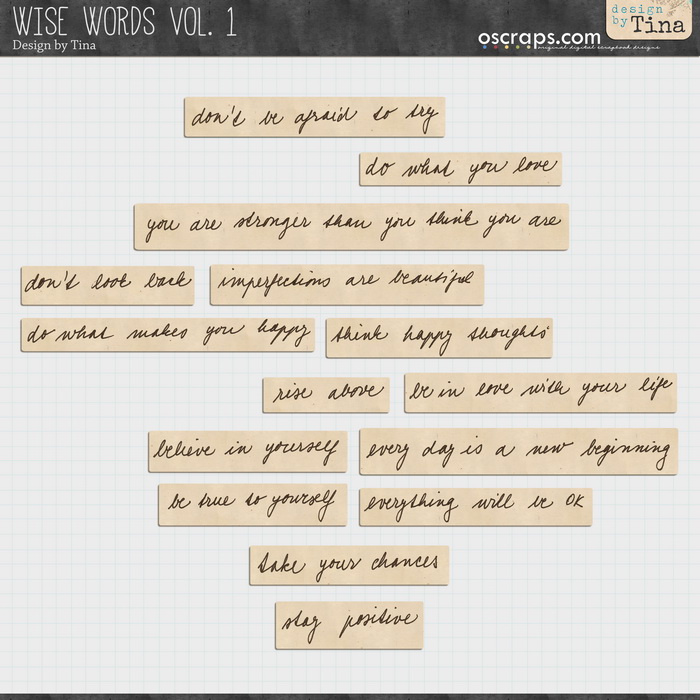 WISE WORDS VOL. 1
Design by Tina
oscraps.com
original digital scrapbook designs
design
by Tina
don't be afraid to try
do what you love
you are stronger than you think you are
don't look back
imperfections are beautiful
do what makes you happy
think happy thoughts
rise above
be in love with your life
believe in yourself
every day is a new beginning
be true to yourself
everything will be OK
take your chances
stay positive